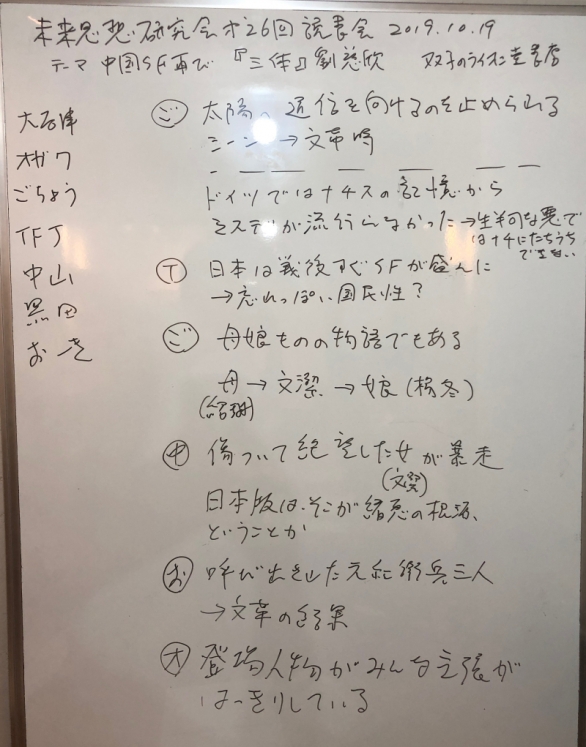 未来思想研究会才26回読書会 2019.10.19
テーマ 中国SF再び 『三体』劉慈欣 双子のライオン堂書店
大石津
オガワ
ごちょう
TFJ
中山
黒田
おーき
ご 太陽へ通信を向けるのを止められる
シーン→文革時
ドイツではナチスの記憶から
ミステリが流行らなかった→生半可な悪で
はナチにたちうち
できない
T 日本は戦後すぐSFが盛んに
→忘れっぽい国民性?
ご 母娘ものの物語でもある
母→文潔→娘(楊冬)
(紹琳)
中 傷ついて絶望した女が暴走
(文潔)
日本版は、そこが諸悪の根源、
ということか
お 呼び出した元紅衛兵三人
→文革の結果
大 登場人物がみんな主張が
はっきりしている